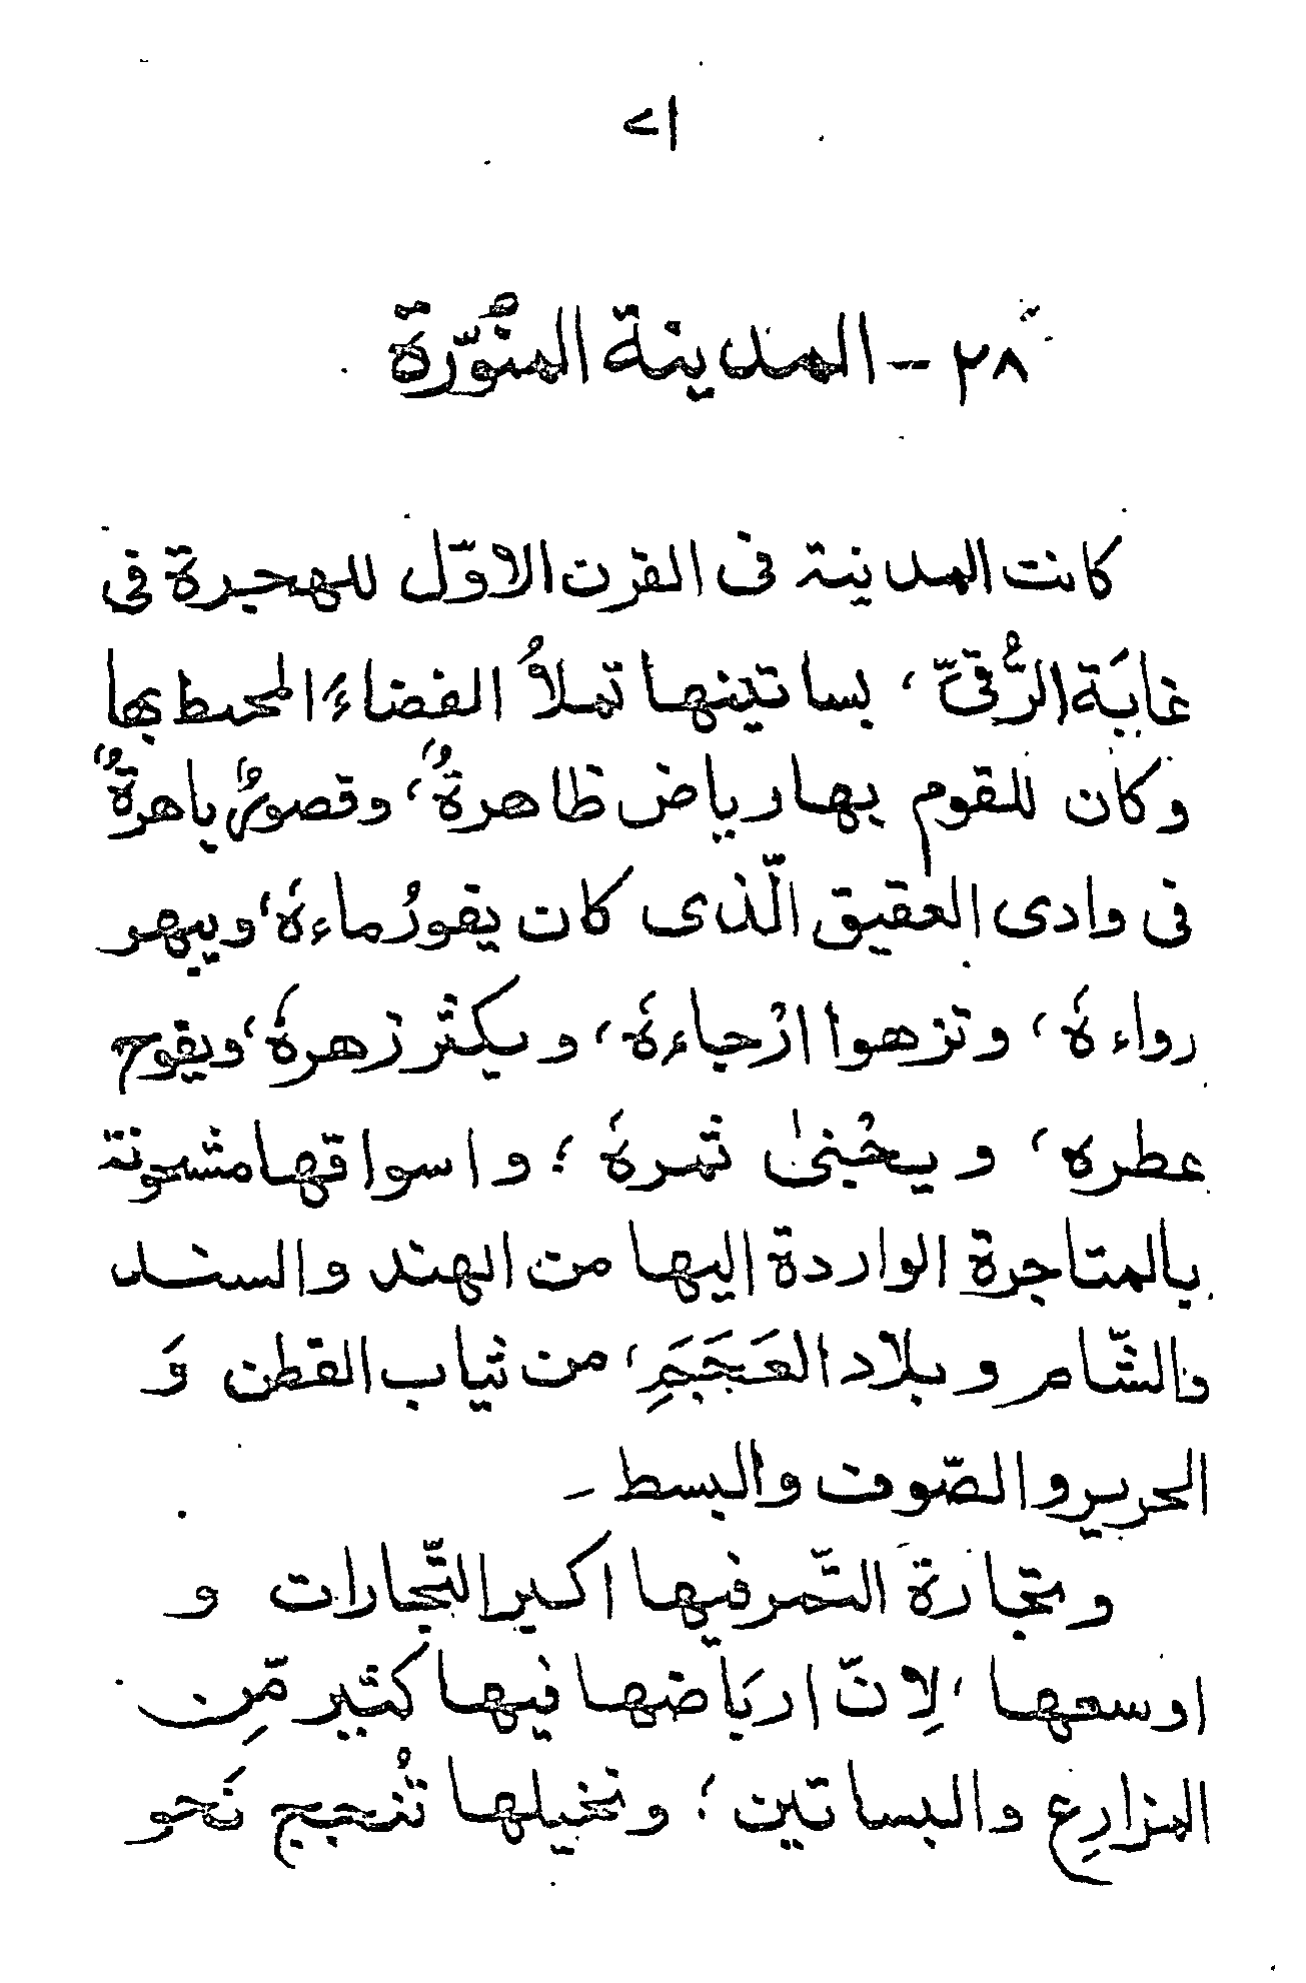 ۷۱
۲۸ - المدينة المنُوّرة
كانت المدينة فى القرن الاوّل للهجرة فى
غايَة الرُّقىّ، بساتينها تملأُ الفضاءَ المحيط بها
وكان للقوم بها رياض ظاهرةٌ، وقصورٌ باهرةٌ
فى وادى العقيق الّذى كان يفورُ ماءهٗ، ويبهر
رواءهٗ، وتزهوا ارْجاءهٗ، ويكثر زهرهٗ، ويفوح
عطره، ويجْنىٰ ثمرهٗ؛ واسواقها مشحونة
بالمتاجرة الواردة اليها من الهند والسند
والشّام وبلاد العَجَمِ، من ثياب القطن وَ
الحرير والصّوف والبسط ـ
وتجارة التّمر فيها اكبر التّجارات و
اوسعها، لِانّ اريَاضها فيها كثير مّن
المزارِع والبساتين؛ ونخيلها تُنجج نَحو